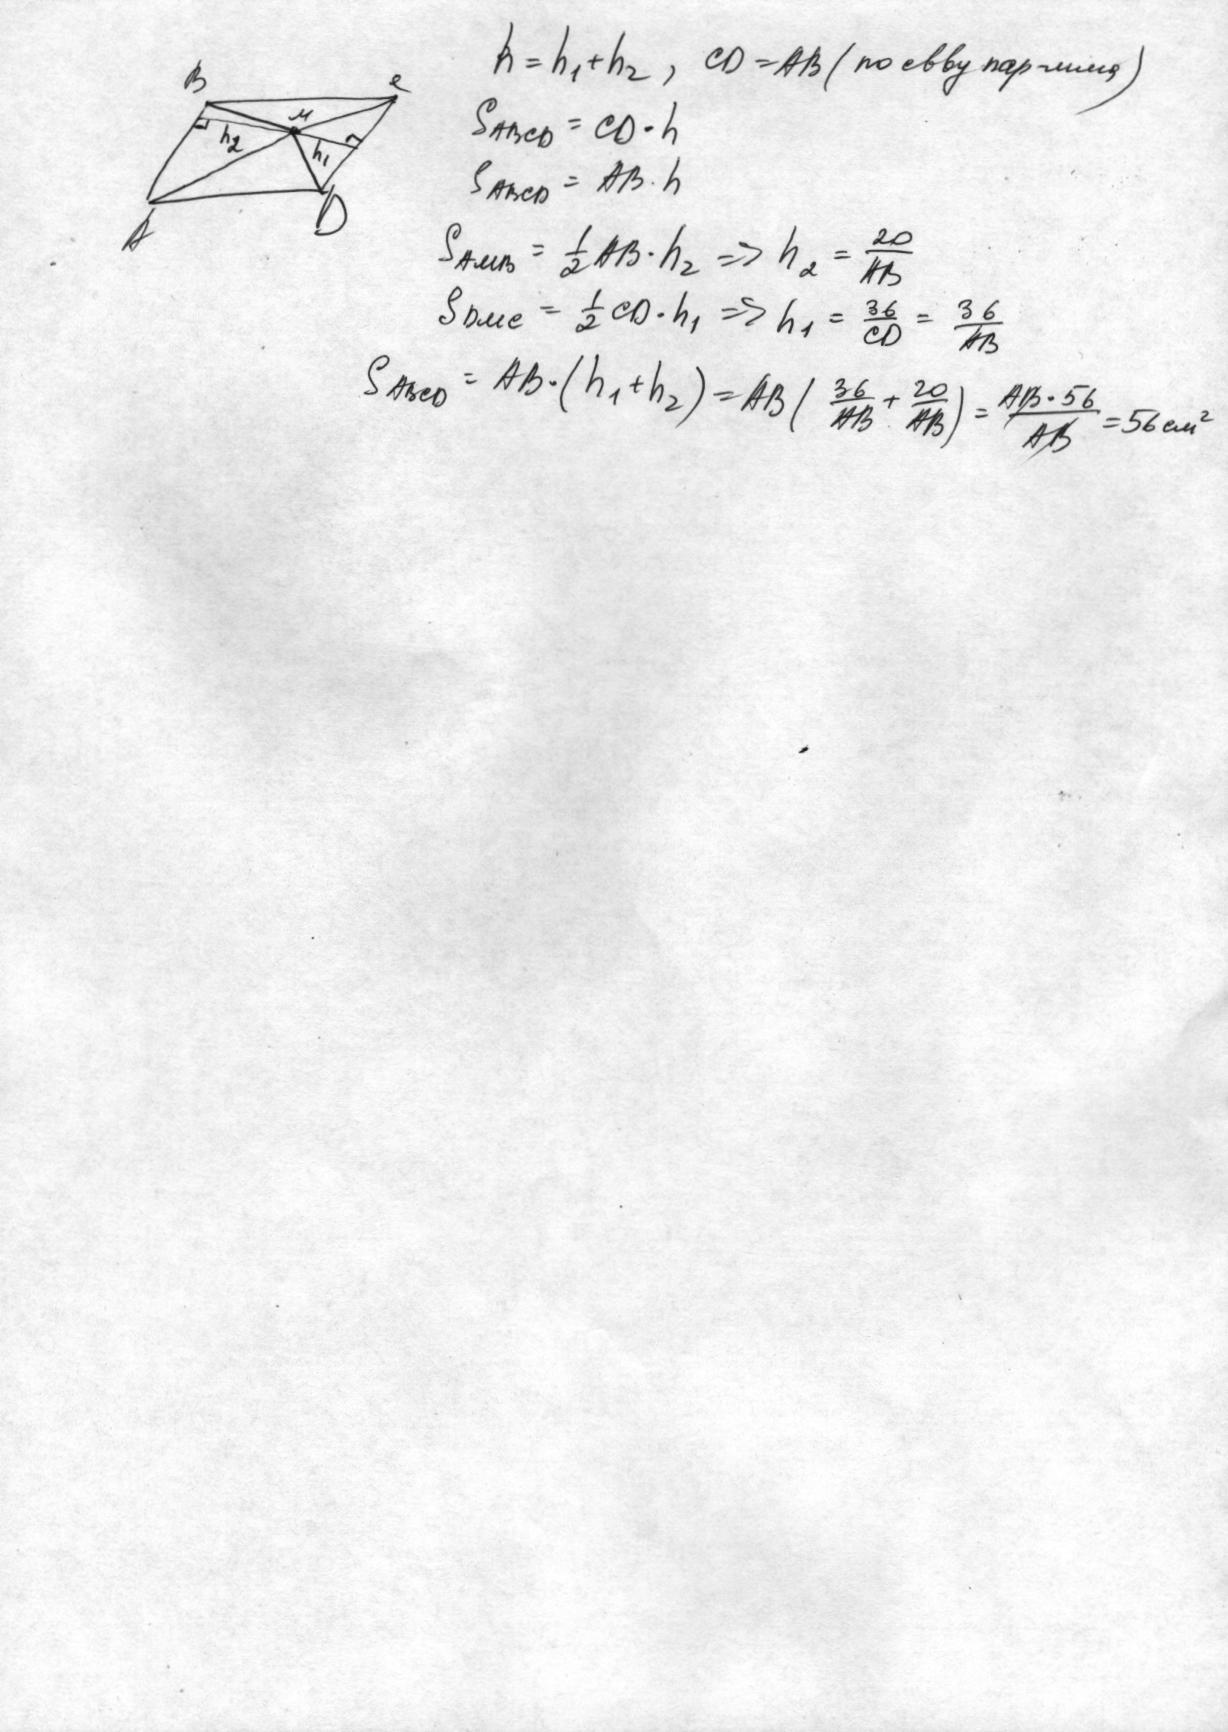 B
C
M
h₂
h₁
A
D
h = h₁ + h₂, CD = AB (по св-ву пар-мма)
S_ABCD = CD · h
S_ABCD = AB · h
S_AMB = 1/2 AB · h₂ => h₂ = 20/AB
S_DMC = 1/2 CD · h₁ => h₁ = 36/CD = 36/AB
S_ABCD = AB · (h₁ + h₂) = AB (36/AB + 20/AB) = AB · 56/AB = 56 см²